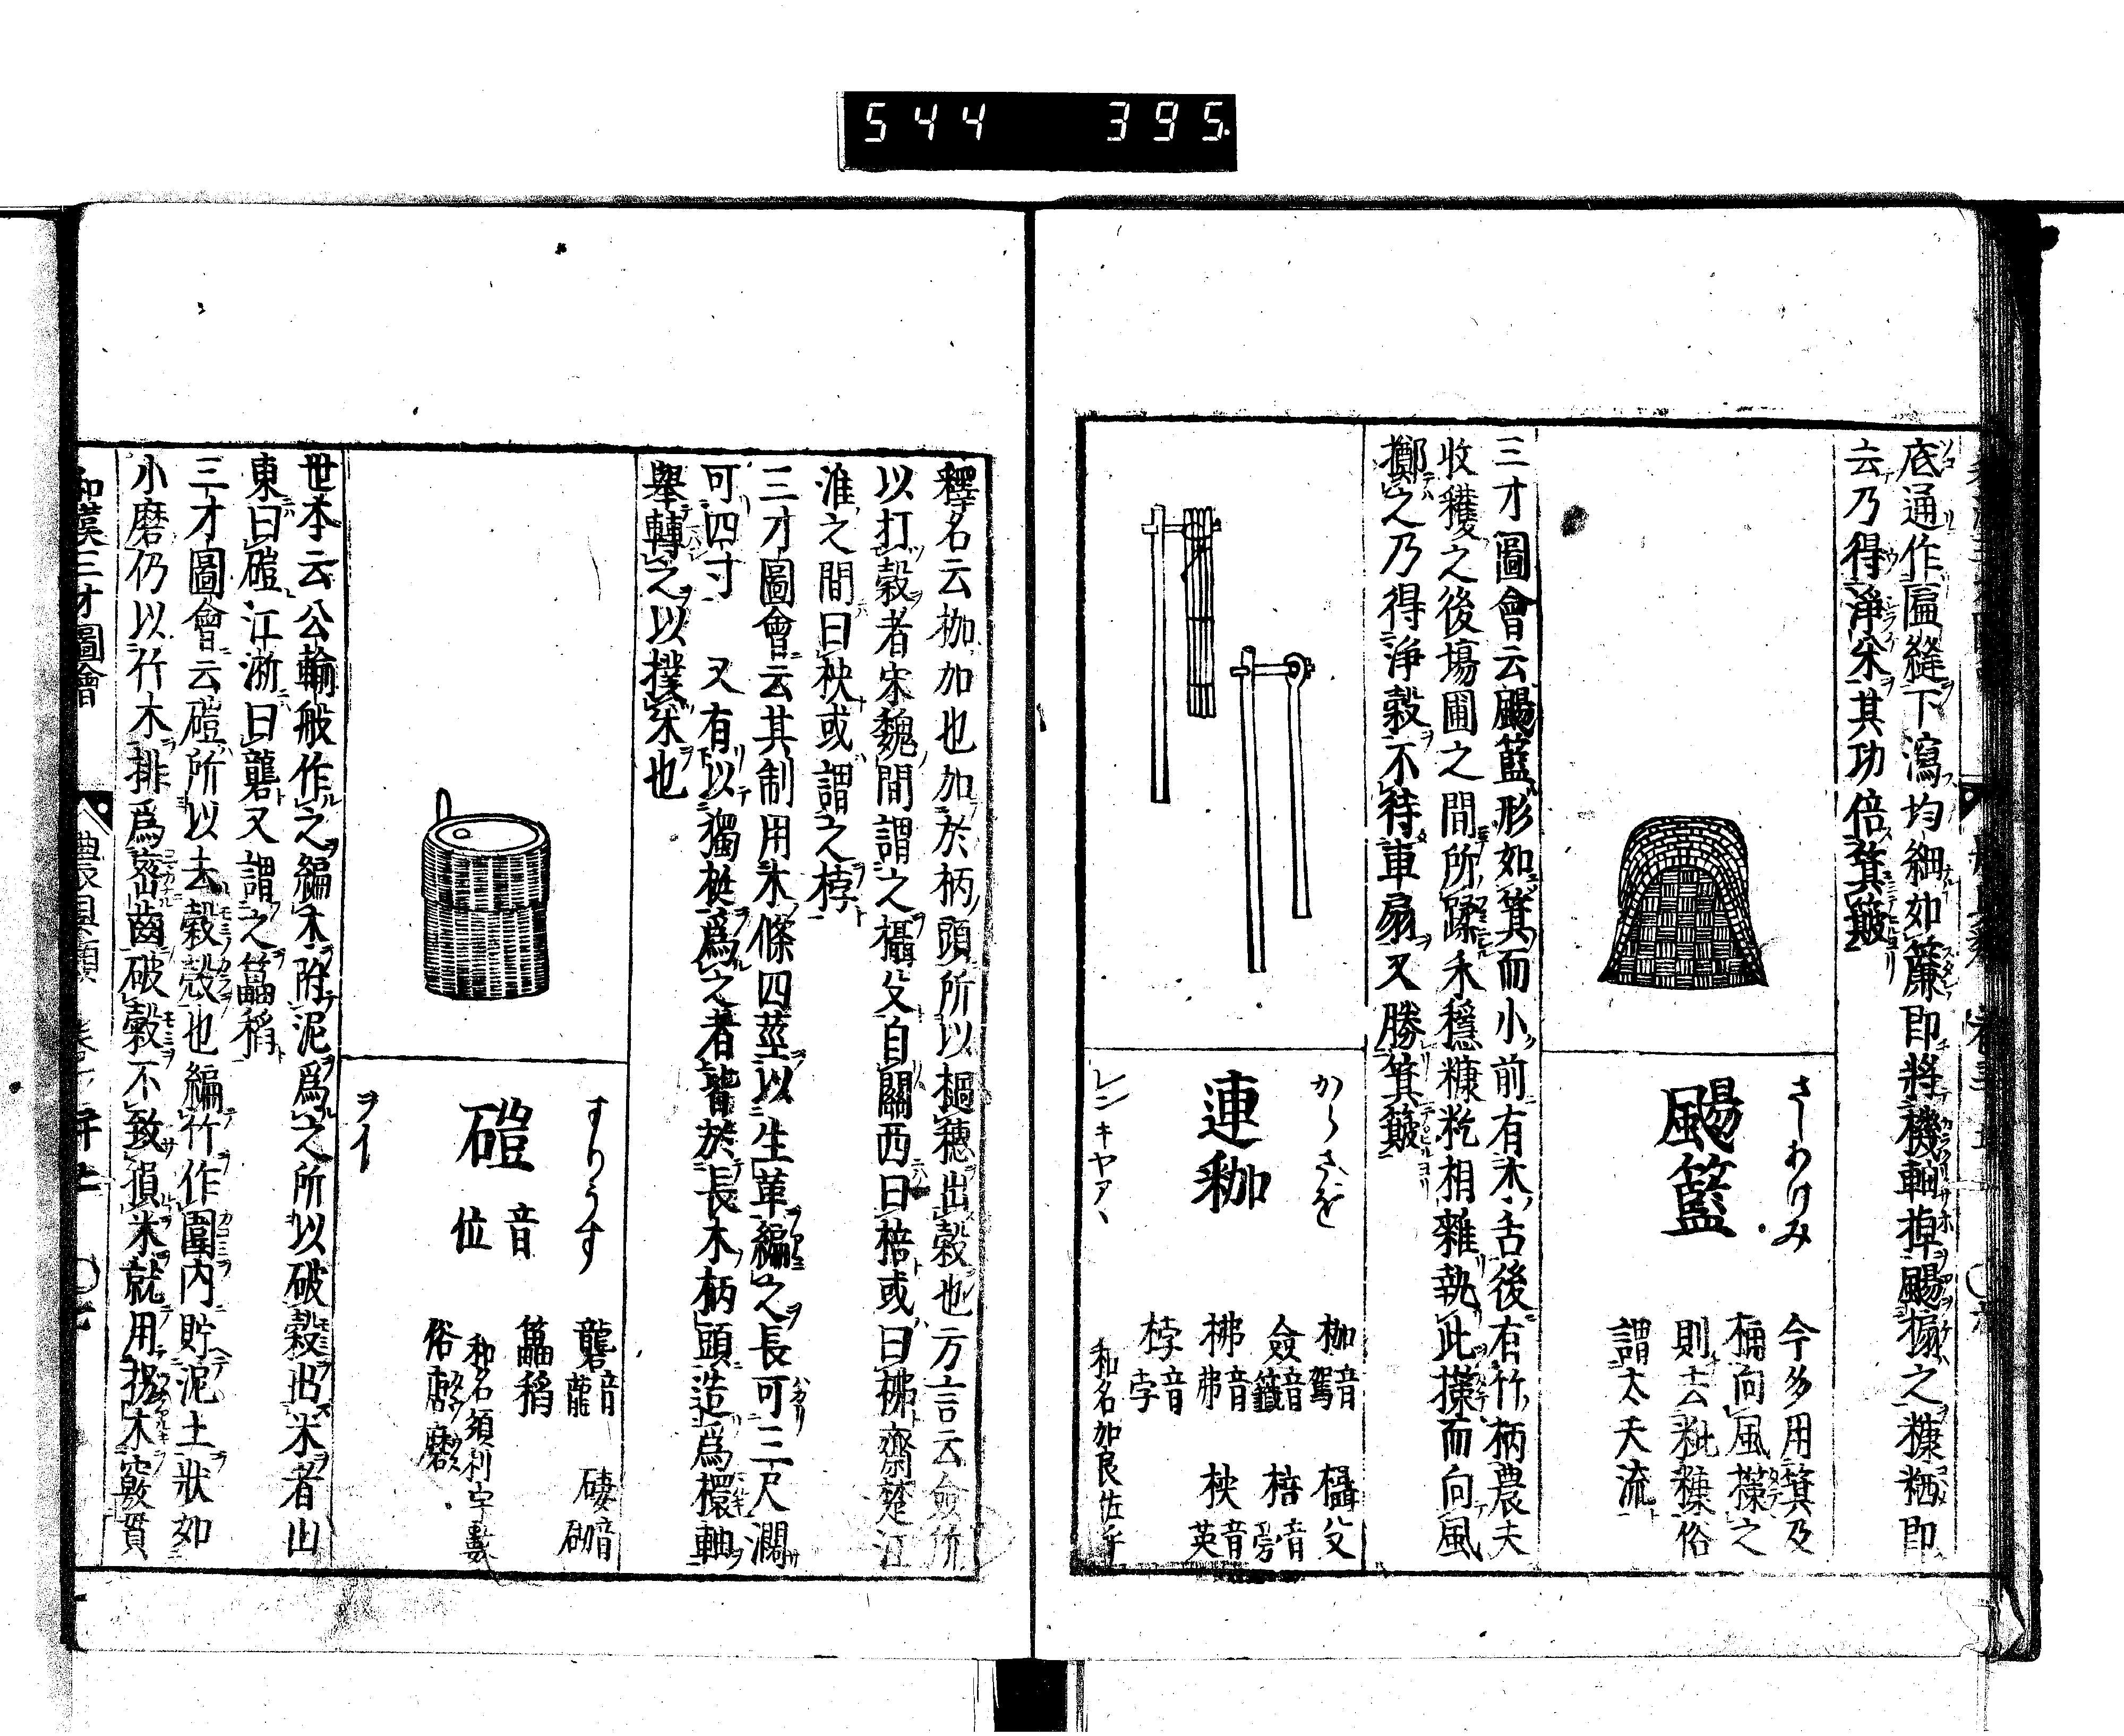 544 395
底通作匾縫下瀉均細如簾即將機軸掉颺搧之糠粞即
云乃得淨米其功倍箕簸
さしわけみ
颺籃
今多用箕及
桶向風擽之
則去粃糠俗
謂太天流
三才圖會云颺籃形如箕而小前有木舌後有竹柄農夫
收穫之後塲圃之間所蹂禾穩糠籺相雜執此擽而向風
擲之乃得淨穀不待車扇又勝箕簸
からさを
連枷
レンキヤアヽ
枷音駕 欇殳
僉音籤 棓音旁
柫音弗 柍音英
桲音孛
和名加良佐乎
釋名云枷加也加於柄頭所以檛穗出穀也方言云僉所
以打穀者宋魏間謂之欇殳自關西曰棓或曰柫齊楚江
淮之間曰柍或謂之桲
三才圖會云其制用木條四莖以生革編之長可三尺濶
可四寸 又有以獨梃爲之者皆於長木柄頭造爲擐軸
舉轉之以撲禾也
すりうす
磑
音位
ヲイ
礱音龍 
礧稻
和名須利宇數
俗
世本云公輸般作之編木附泥爲之所以破穀出米者山
東曰磑江淅曰礱又謂之礧稻
三才圖會云磑所以去穀殼也編竹作圍内貯泥土狀如
小磨仍以竹木排爲密齒破穀不致損米就用拐木竅貫
和漢三才圖會 農具類